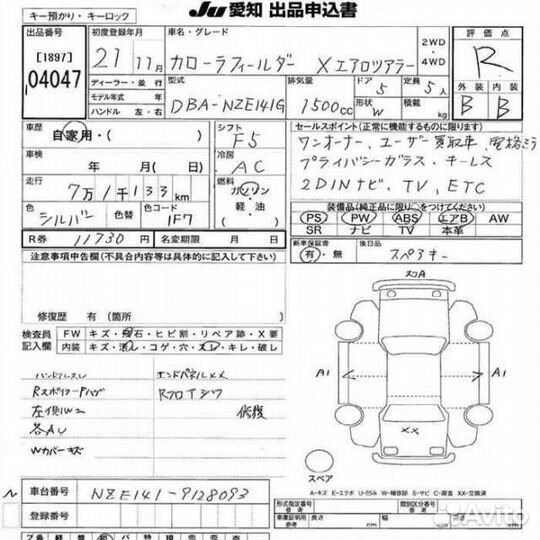 キー預かり・キーロック
JU 愛知 出品申込書
出品番号
[1897]
04047
初度登録年月
21 11月
ディーラー・並行
モデル年式 年
ハンドル 左・右
車名・グレード
カローラフィールダー Xエアロツアラー
2WD
4WD
型式
DBA-NZE141G
排気量
1500cc
ドア
5
形状
W
定員
5人
積載
kg
評価点
R
外装 内装
B B
車歴
自家用・( )
車検
年 月( )日
走行
7万1千133km
色
シルバー
色替
色コード
1F7
シフト
F5
冷房
AC
燃料
ガソリン
軽・油
( )
R券 11730 円 名変期限 月 日
セールスポイント(正常に機能するものに限ります。)
ワンオーナー、ユーザー買取車
プライバシーガラス キーレス
2DINナビ、TV、ETC
装備品(純正品に限り○をつけてください。)
PS PW ABS エアB AW
SR ナビ TV 本革
新車保証書
有・無
後日品
スペアキー
注意事項申告欄(不具合内容等は具体的に記入して下さい)
修復歴 有(箇所 )
検査員
記入欄
FW キズ・飛石・ヒビ割・リペア跡・X要
内装 キズ・汚レ・コゲ・穴・スレ・キレ・破レ
ハンドルスレ
エンドパネルXX
左側W2
修復
各AU
Wカバーキズ
スリA
A1
A1
XX
スペア
A-キズ E-エクボ U-凹み W-補修跡 S-サビ C-腐食 XX-交換済
車台番号 NZE141-9128093
登録番号
形式指定番号
類別区分番号
車庫証明用
長さ cm
幅 cm
高さ cm
Avito